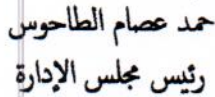 حمد عصام الطاحوس
رئيس مجلس الإدارة